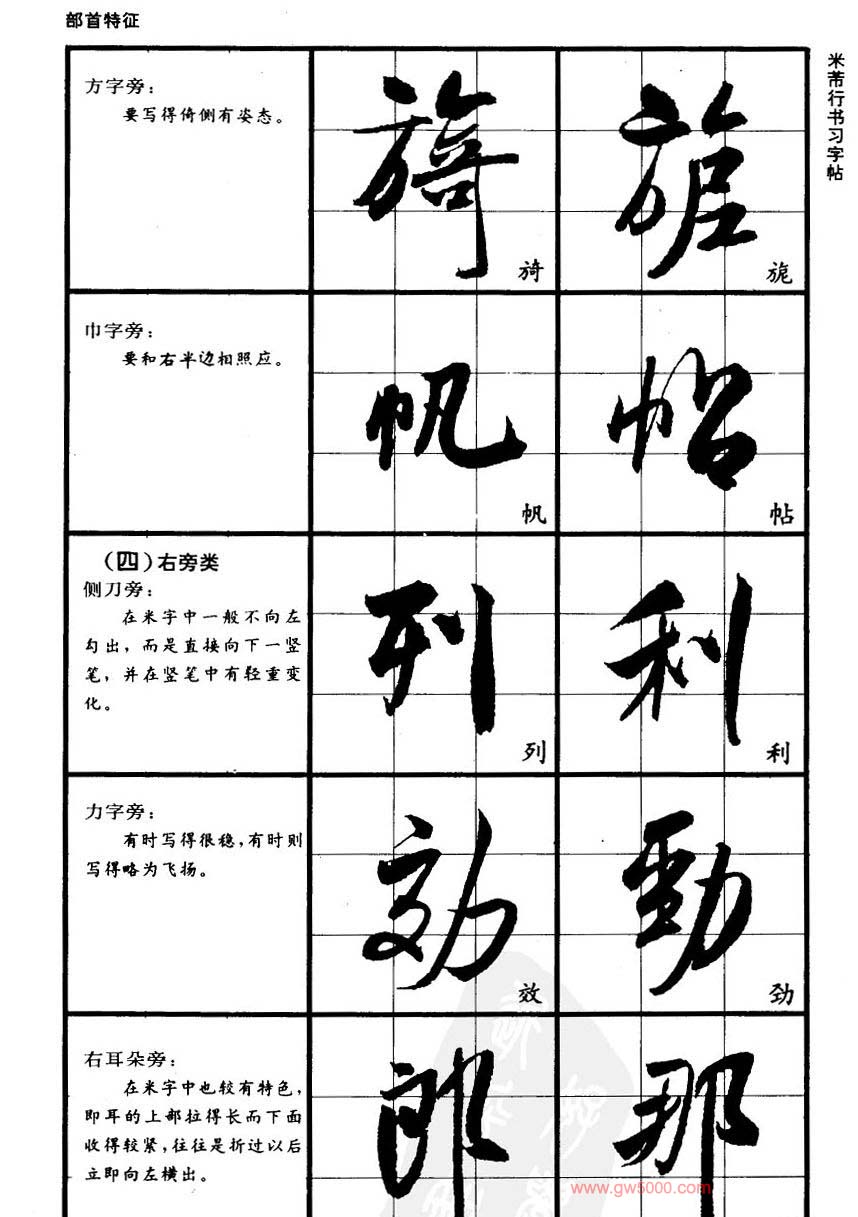 部首特征
米芾行书习字帖
方字旁：
要写得倚侧有姿态。
旖
旎
巾字旁：
要和右半边相照应。
帆
帖
帆
帖
（四）右旁类
侧刀旁：
在米字中一般不向左
勾出，而是直接向下一竖
笔，并在竖笔中有轻重变
化。
列
利
列
利
力字旁：
有时写得很稳，有时则
写得略为飞扬。
効
勁
效
劲
右耳朵旁：
在米字中也较有特色，
即耳的上部拉得长而下面
收得较紧，往往是折过以后
立即向左横出。
郎
那
www.gw5000.com